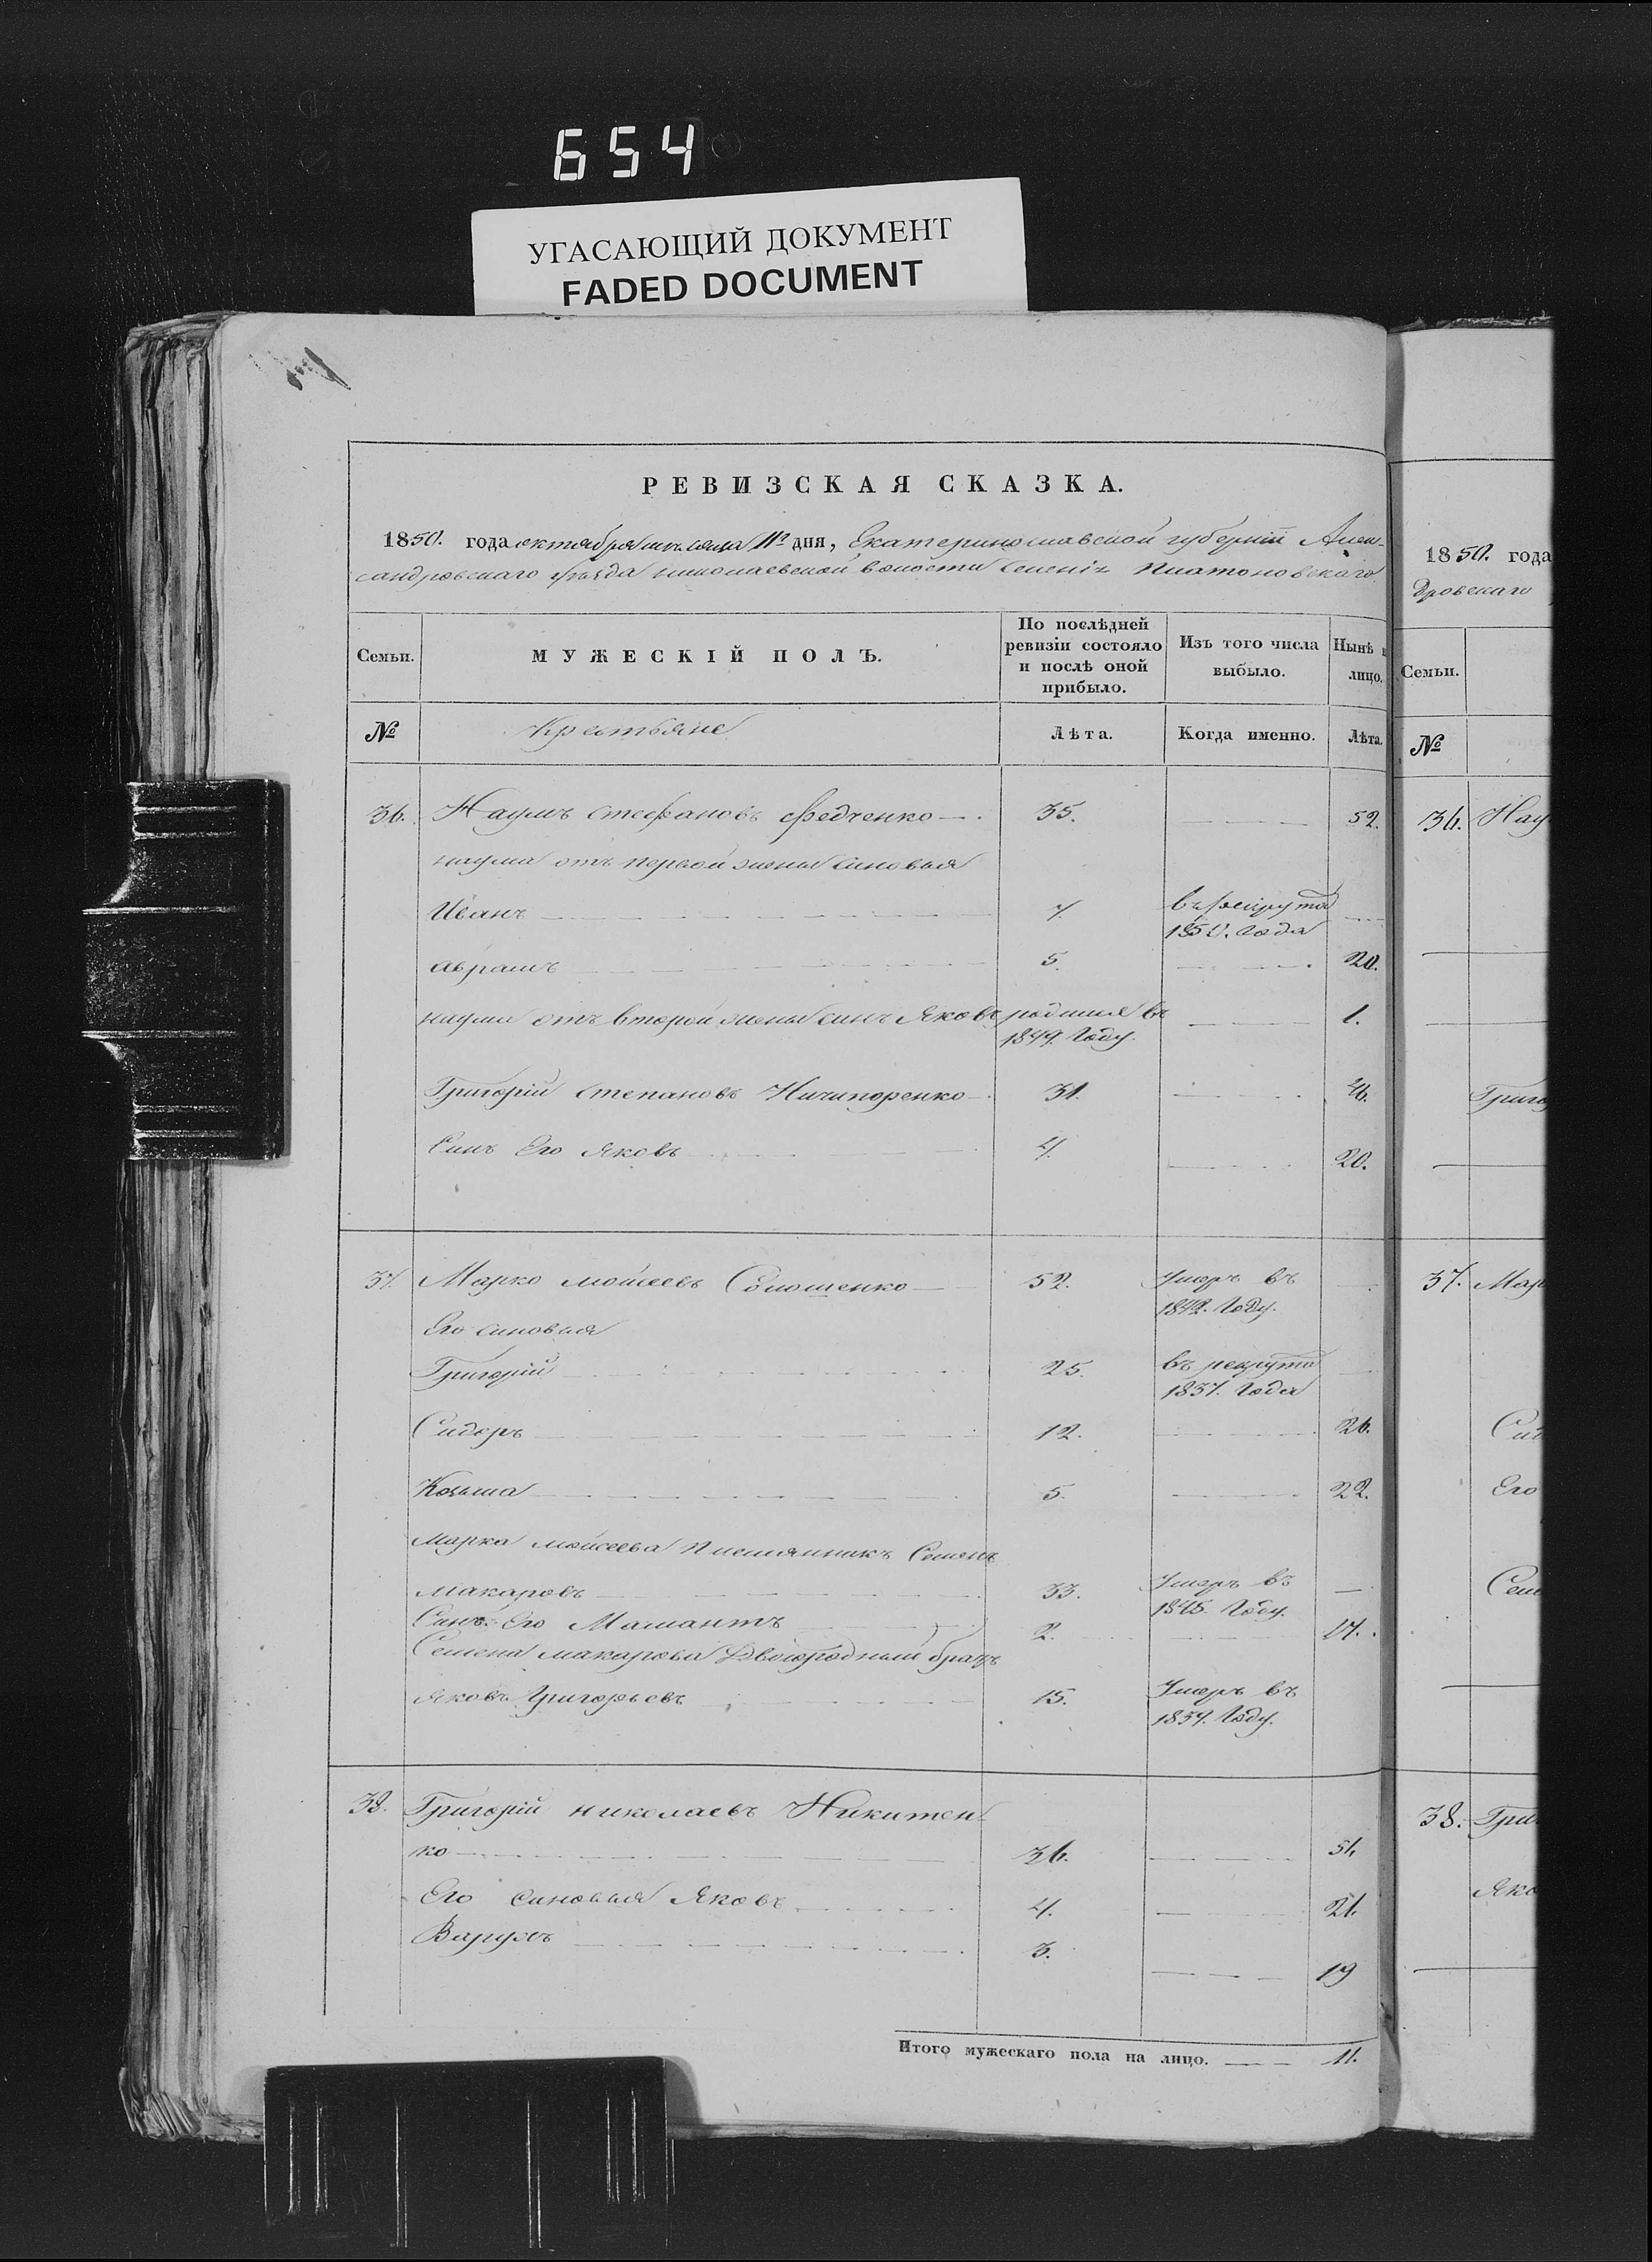 654
УГАСАЮЩИЙ ДОКУМЕНТ
FADED DOCUMENT
РЕВИЗСКАЯ СКАЗКА.
1850. года октября месяца 11го дня, Екатеринославской губернии Алек-
сандровскаго уезда николаевской волости Селения Платоновскаго
Семьи.
МУЖЕСКІЙ ПОЛЪ.
По послѣдней ревизіи состояло и послѣ оной прибыло.
Изъ того числа выбыло.
Нынѣ
лицо.
№
Крестьяне
Лѣта.
Когда именно.
Лѣта.
36. Наумъ Стефановъ Федченко 35. 52.
наума отъ первой жены синовья
Иванъ 7. въ рекруто 1850. Года
Аврамъ 5. 20.
наума отъ второй жены синъ Яковъ родился въ 1849. Году. 1.
Григорій Степановъ Ничипоренко 31. 46.
Синъ Его Яковъ 4. 20.
37. Марко Моисеевъ 52. Умеръ въ 1842. Году.
Его синовья
Григорій 25. въ рекруто 1837. Года
Сидоръ 12. 26.
Козьма 5. 22.
Марка Моисеева племянникъ Семенъ
Макаровъ 33. Умеръ въ 1845. Году.
Синъ Его Мамантъ 2. 17.
Семена Макарова Двоюродный братъ
Яковъ Григорьевъ 15. Умеръ въ 1837. Году.
38. Григорій николаевъ Никитен-
ко 36. 51.
Его синовья Яковъ 4. 21.
3. 19
Итого мужескаго пола на лицо. 11.
1850. года
дровскаго
Семьи.
№
36. Нау
Григо
37. Мар
Сид
Его
Семе
38. Гри
Яко